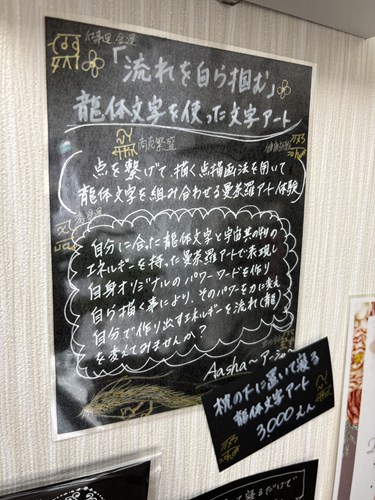 仕事運 金運
「流れを自ら掴む」
龍体文字を使った文字アート
商売繁盛
点を繋げて、描く点描画法を用いて
龍体文字を組み合わせる曼荼羅アート体験
自分に合った龍体文字と宇宙共通の
エネルギーを持った曼荼羅アートで表現し
自身オリジナルのパワーワードを作り
自ら描く事により、そのパワーを力に変え
自分で作り出すエネルギーを流れ(龍)
を変えてみませんか?
Aasha〜アーシャ
枕の下に置いて寝る
龍体文字アート
3,000えん
寝るだけで